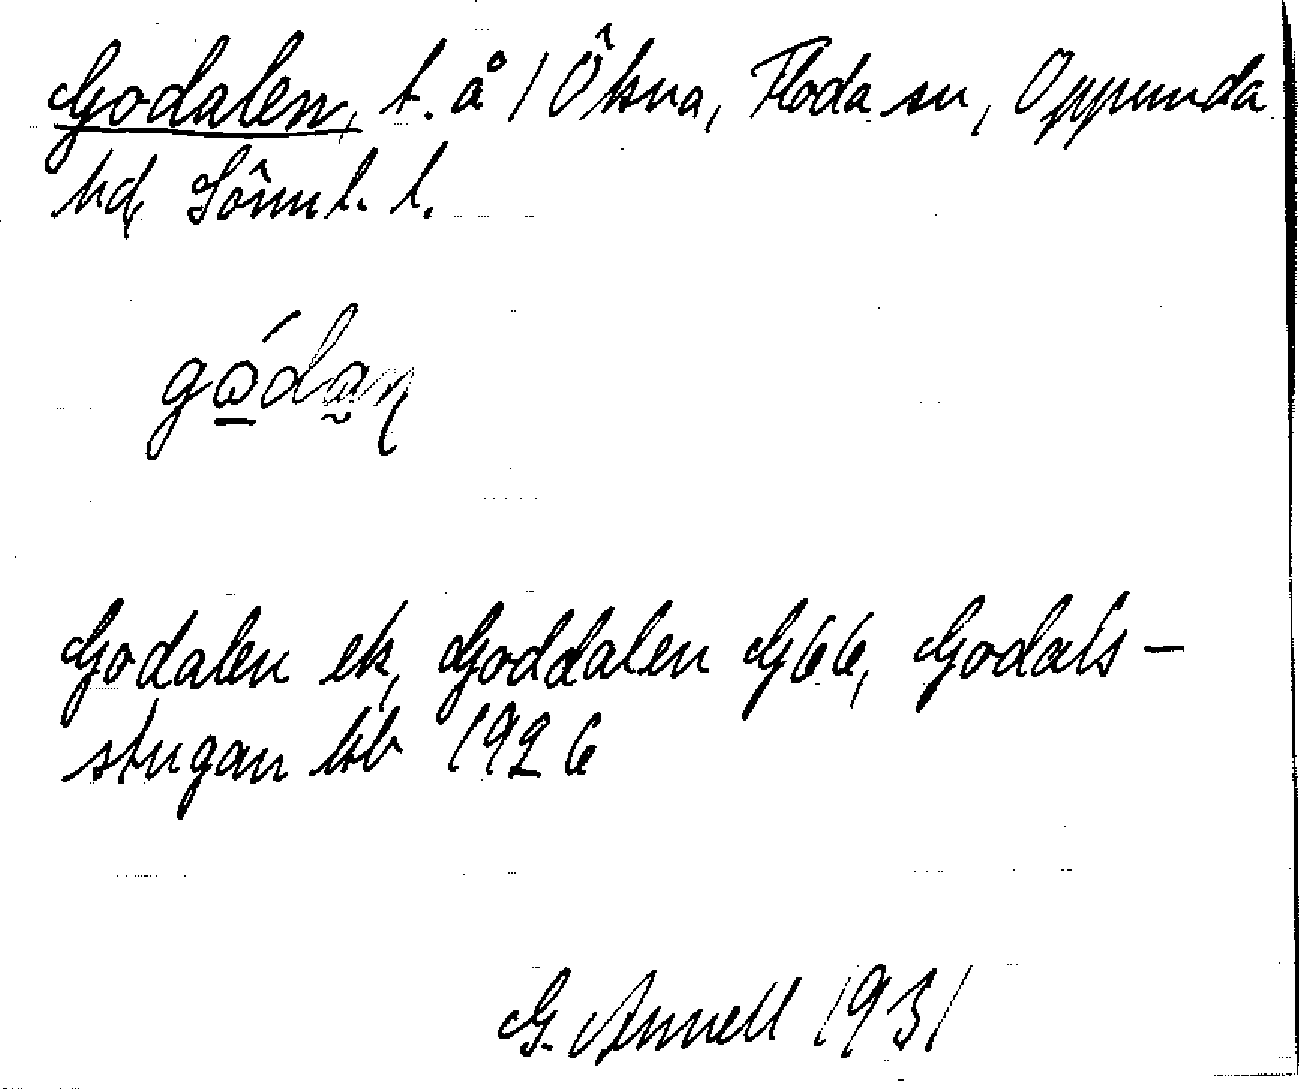 Godalen, t. å 1 Ökna, Floda sn, Oppunda
hd, Sörml. l.
gódan
Godalen ek, Goddalen G66, Godals-
stugan tsb 1926
G. Annell 1931